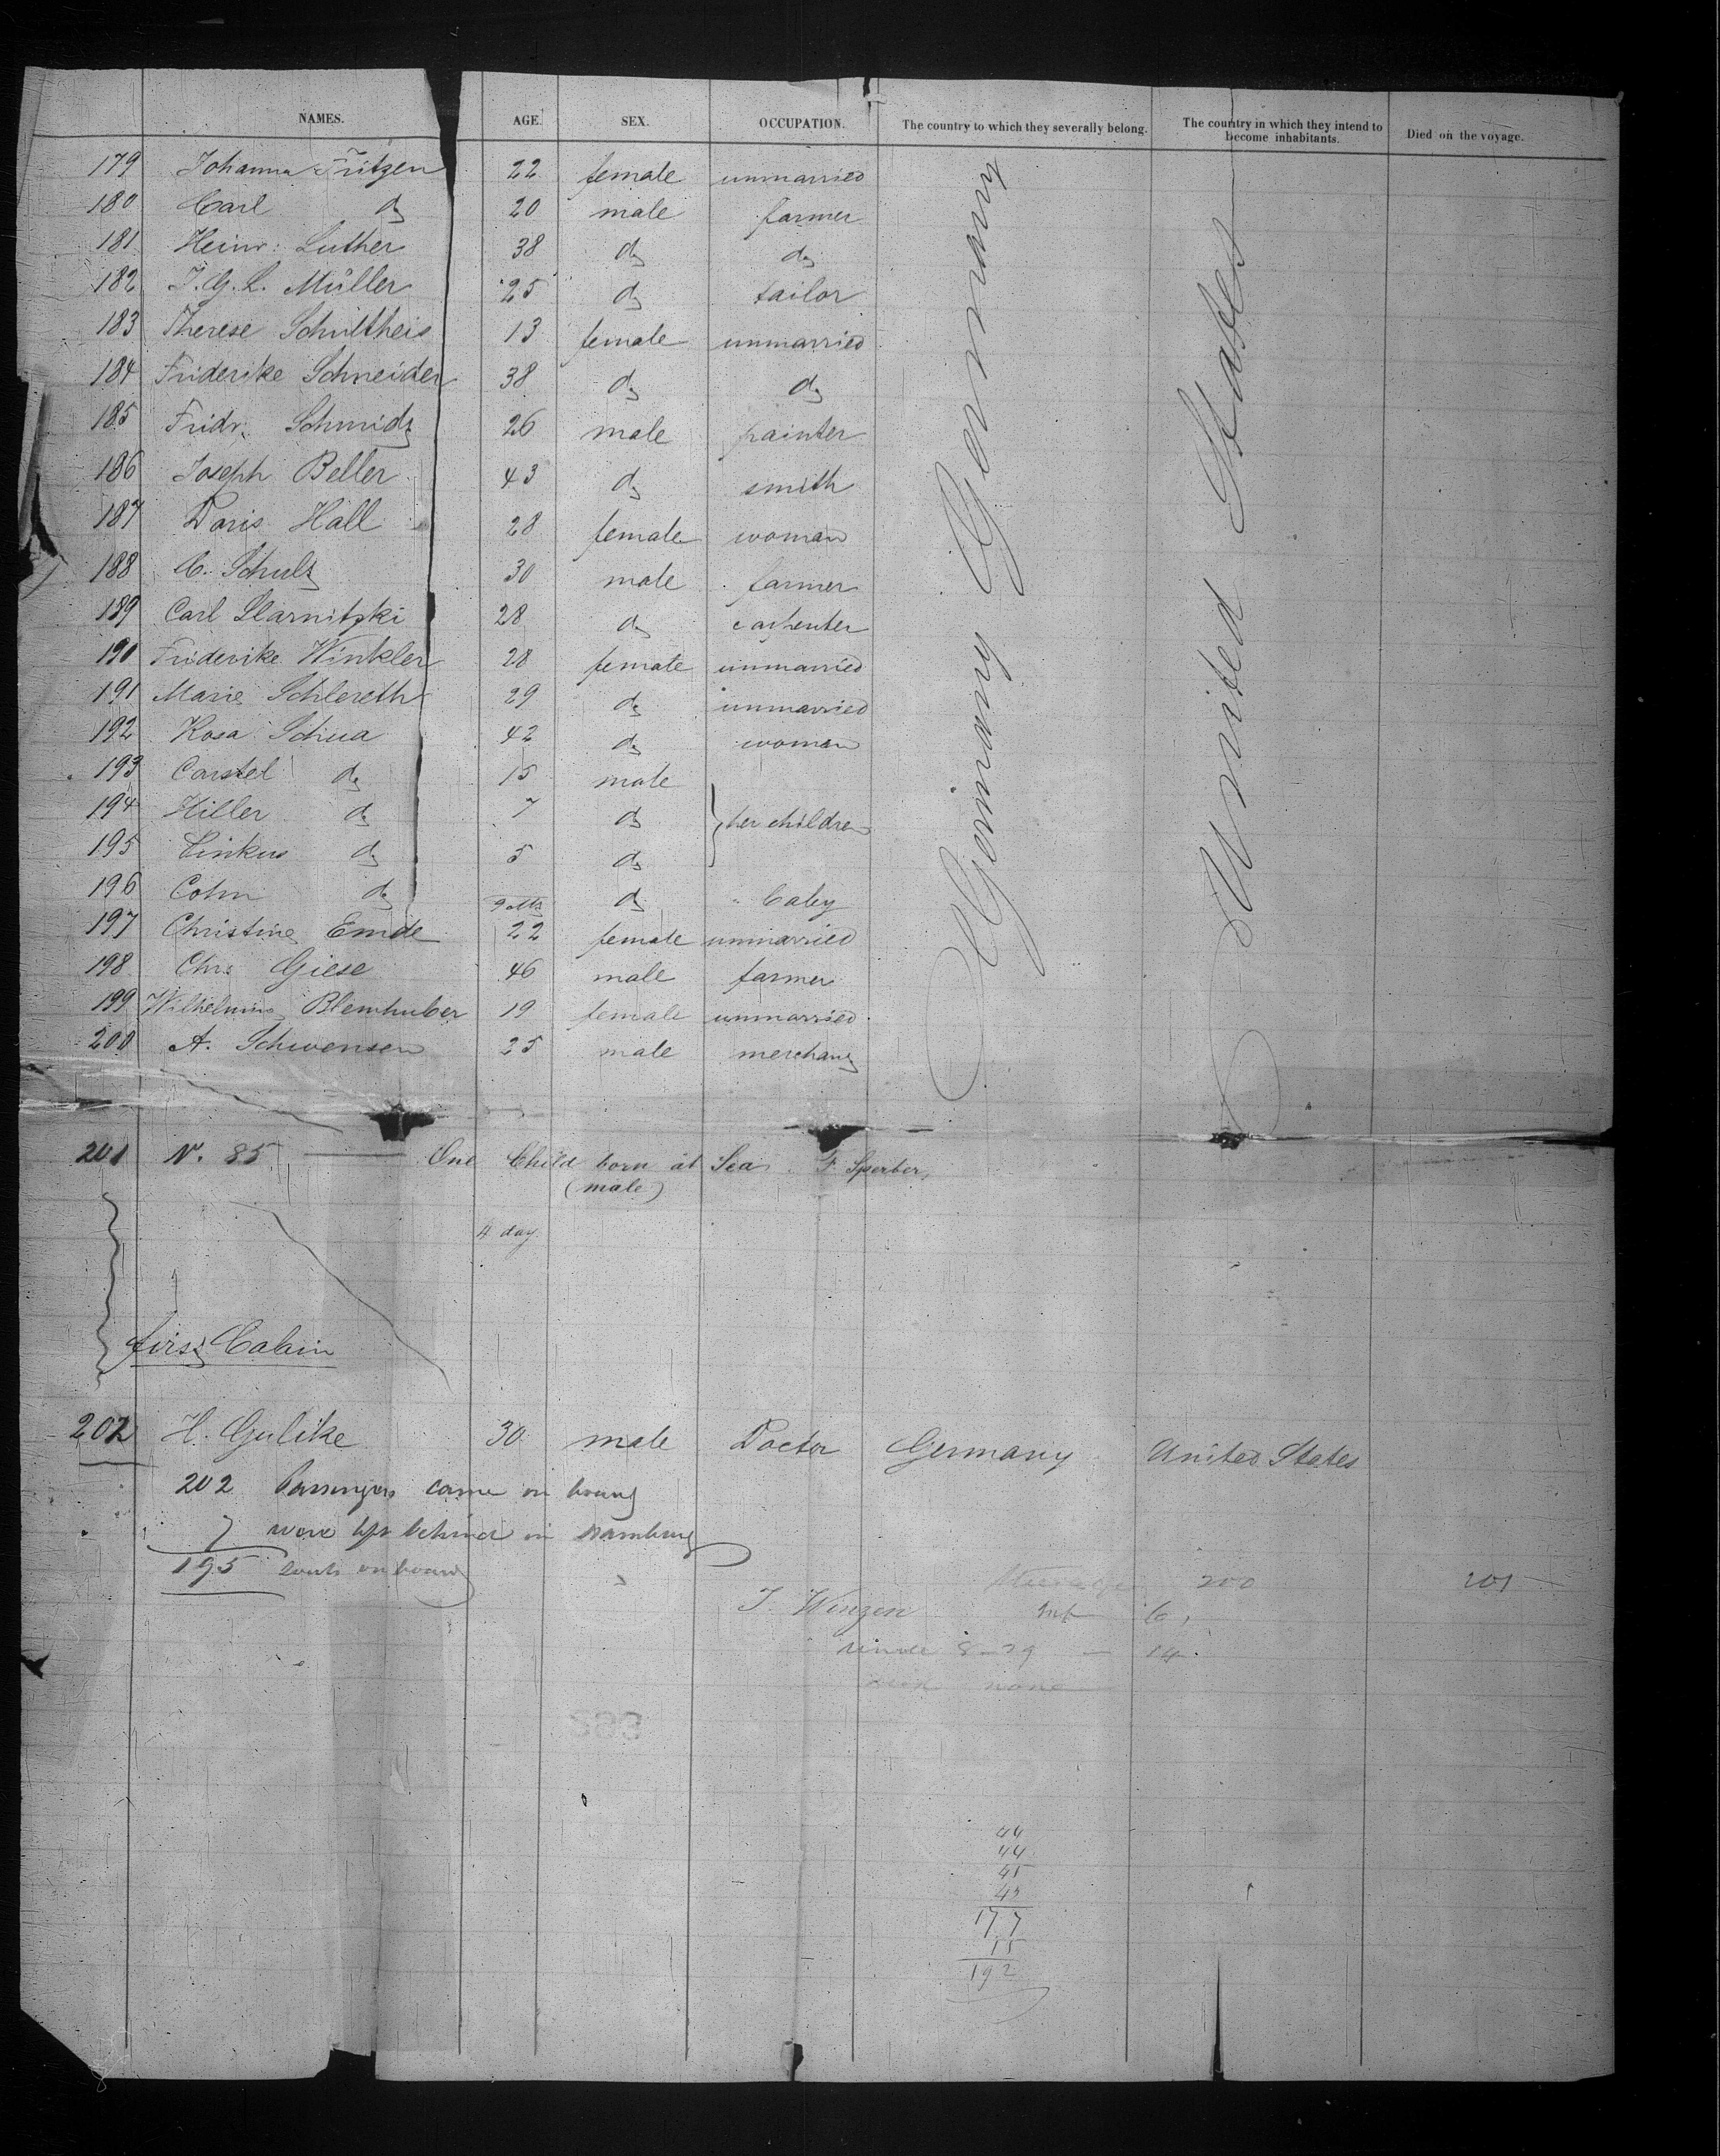 NAMES. AGE. SEX. OCCUPATION. The country to which they severally belong. The country in which they intend to become inhabitants. Died on the voyage.
179 Johanna Fritzen 22 female unmarried
180 Carl do 20 male farmer
181 Heinr: Luther 38 do do
182 J. G. L. Müller 25 do tailor
183 Therese Schultheis 13 female unmarried
184 Friderike Schneider 38 do do
185 Fridr. Schmidt 26 male painter
186 Joseph Beller 43 do smith
187 Doris Hall 28 female woman
188 C. Schulz 30 male farmer
189 Carl Slarnitzki 28 do carpenter
190 Friderike Winkler 28 female unmarried
191 Marie Schlereth 29 do unmarried
192 Rosa Schua 42 do woman
193 Carstel do 15 male
194 Hiller do 7 do her children
195 Linkus do 5 do
196 Cohn do 9 Mts do " baby
197 Christine Emde 22 female unmarried
198 Chr: Giese 46 male farmer
199 Wilhelmine Blemhuber 19 female unmarried
200 A. Schwensen 25 male merchant
Germany Germany
United States
201 N. 85 One Child born at Sea F. Sperber,
(male)
4 day
first Cabin
202 H. Gulike 30 male Doctor Germany United States
202 Passengers came on board
7 were left behind in Hamburg
195 souls on board
steerage 200 201
J. Winzen Inf 6,
under 8 - 14
none
44
44
45
177
15
192